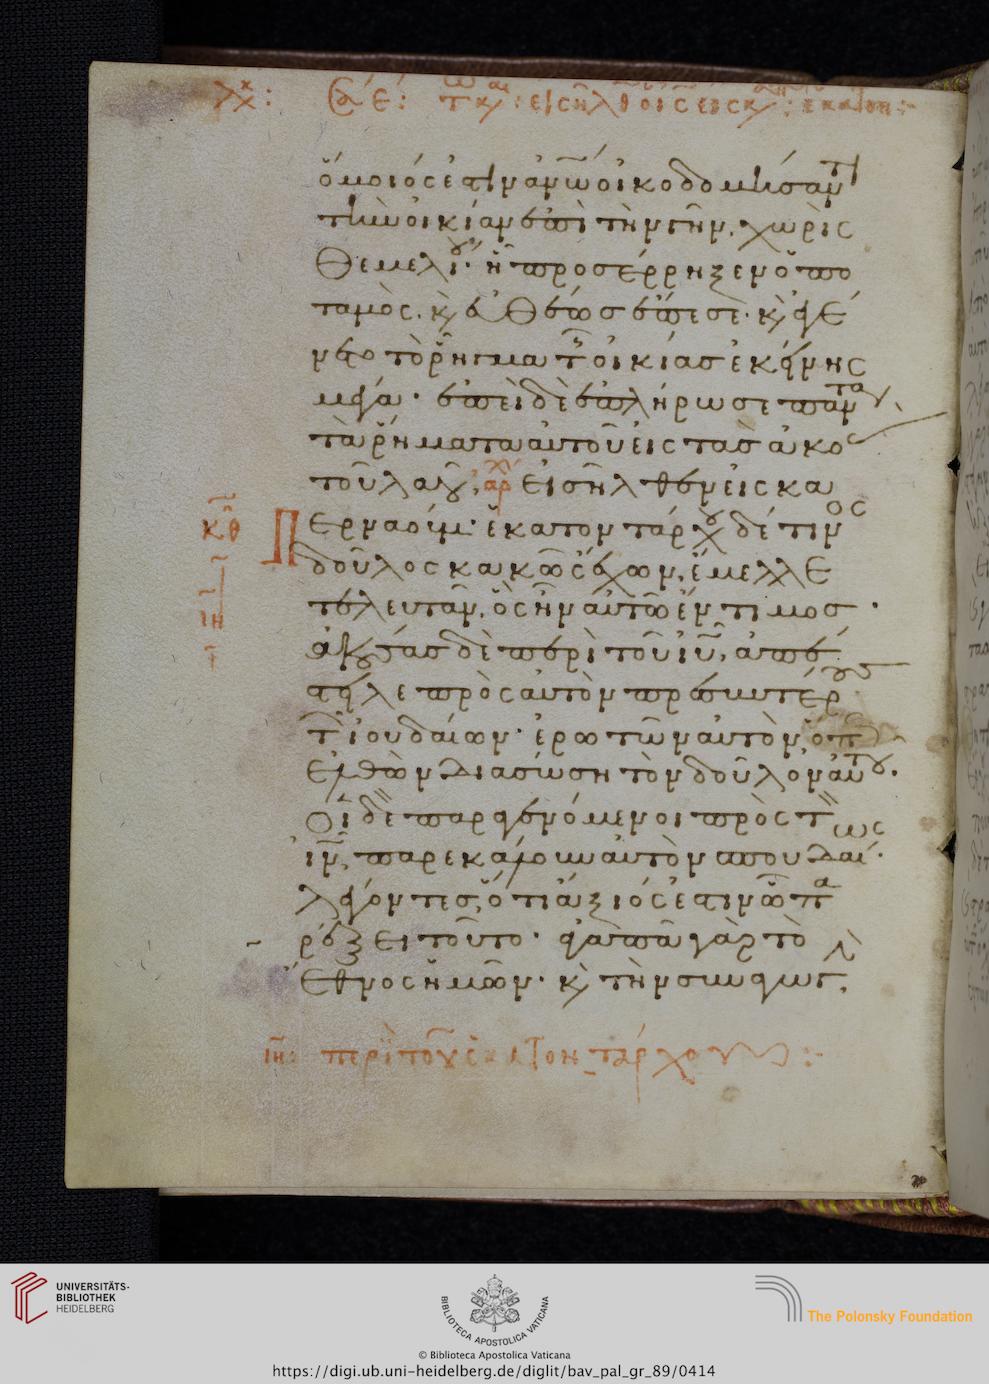 ὅμοιός ἐστιν ἀνω οἰκοδομήσαντι
τὴν οἰκίαν ἐπὶ τὴν γῆν. χωρὶς
θεμελίου. ἡ προσέρρηξεν ὁ πο
ταμὸς. κ εὐθέως ἔπεσε. κ ἐγέ
νετο τὸ ῥῆγμα τ οἰκίας ἐκείνης
μέγα. ἐπειδὲ ἐπλήρωσε πάντα
τὰ ῥήματα αὐτοῦ εἰς τὰς ἀκο
τοῦ λαοῦ, αρχ εἰσῆλθεν εἰς κα
περναούμ. ἑκατοντάρχου δέ τινος
δοῦλος κακῶς ἔχων, ἔμελλε
τελευτᾶν, ὃς ἦν αὐτῶ ἔντιμος.
ἀκούσας δὲ περὶ τοῦ ιυ, ἀπέ
στειλε πρὸς αὐτὸν πρεσβυτέρους
τ ἰουδαίων. ἐρωτῶν αὐτὸν, ὅπ
ἐλθὼν διασώση τὸν δοῦλον αὐτοῦ.
Οἱ δὲ παραγενόμενοι πρὸς τ
ιν, παρεκάλουν αὐτὸν σπουδαίως.
λέγοντες, ὅτι ἄξιός ἐστιν ὦ πα
ρέξει τοῦτο. ἀγαπᾶ γὰρ τὸ
ἔθνος ἡμῶν. κ τὴν συναγωγ,
ιη: περὶ τοῦ ἑκατοντάρχου:
UNIVERSITÄTS-
BIBLIOTHEK
HEIDELBERG
BIBLIOTECA APOSTOLICA VATICANA
The Polonsky Foundation
© Biblioteca Apostolica Vaticana
https://digi.ub.uni-heidelberg.de/diglit/bav_pal_gr_89/0414